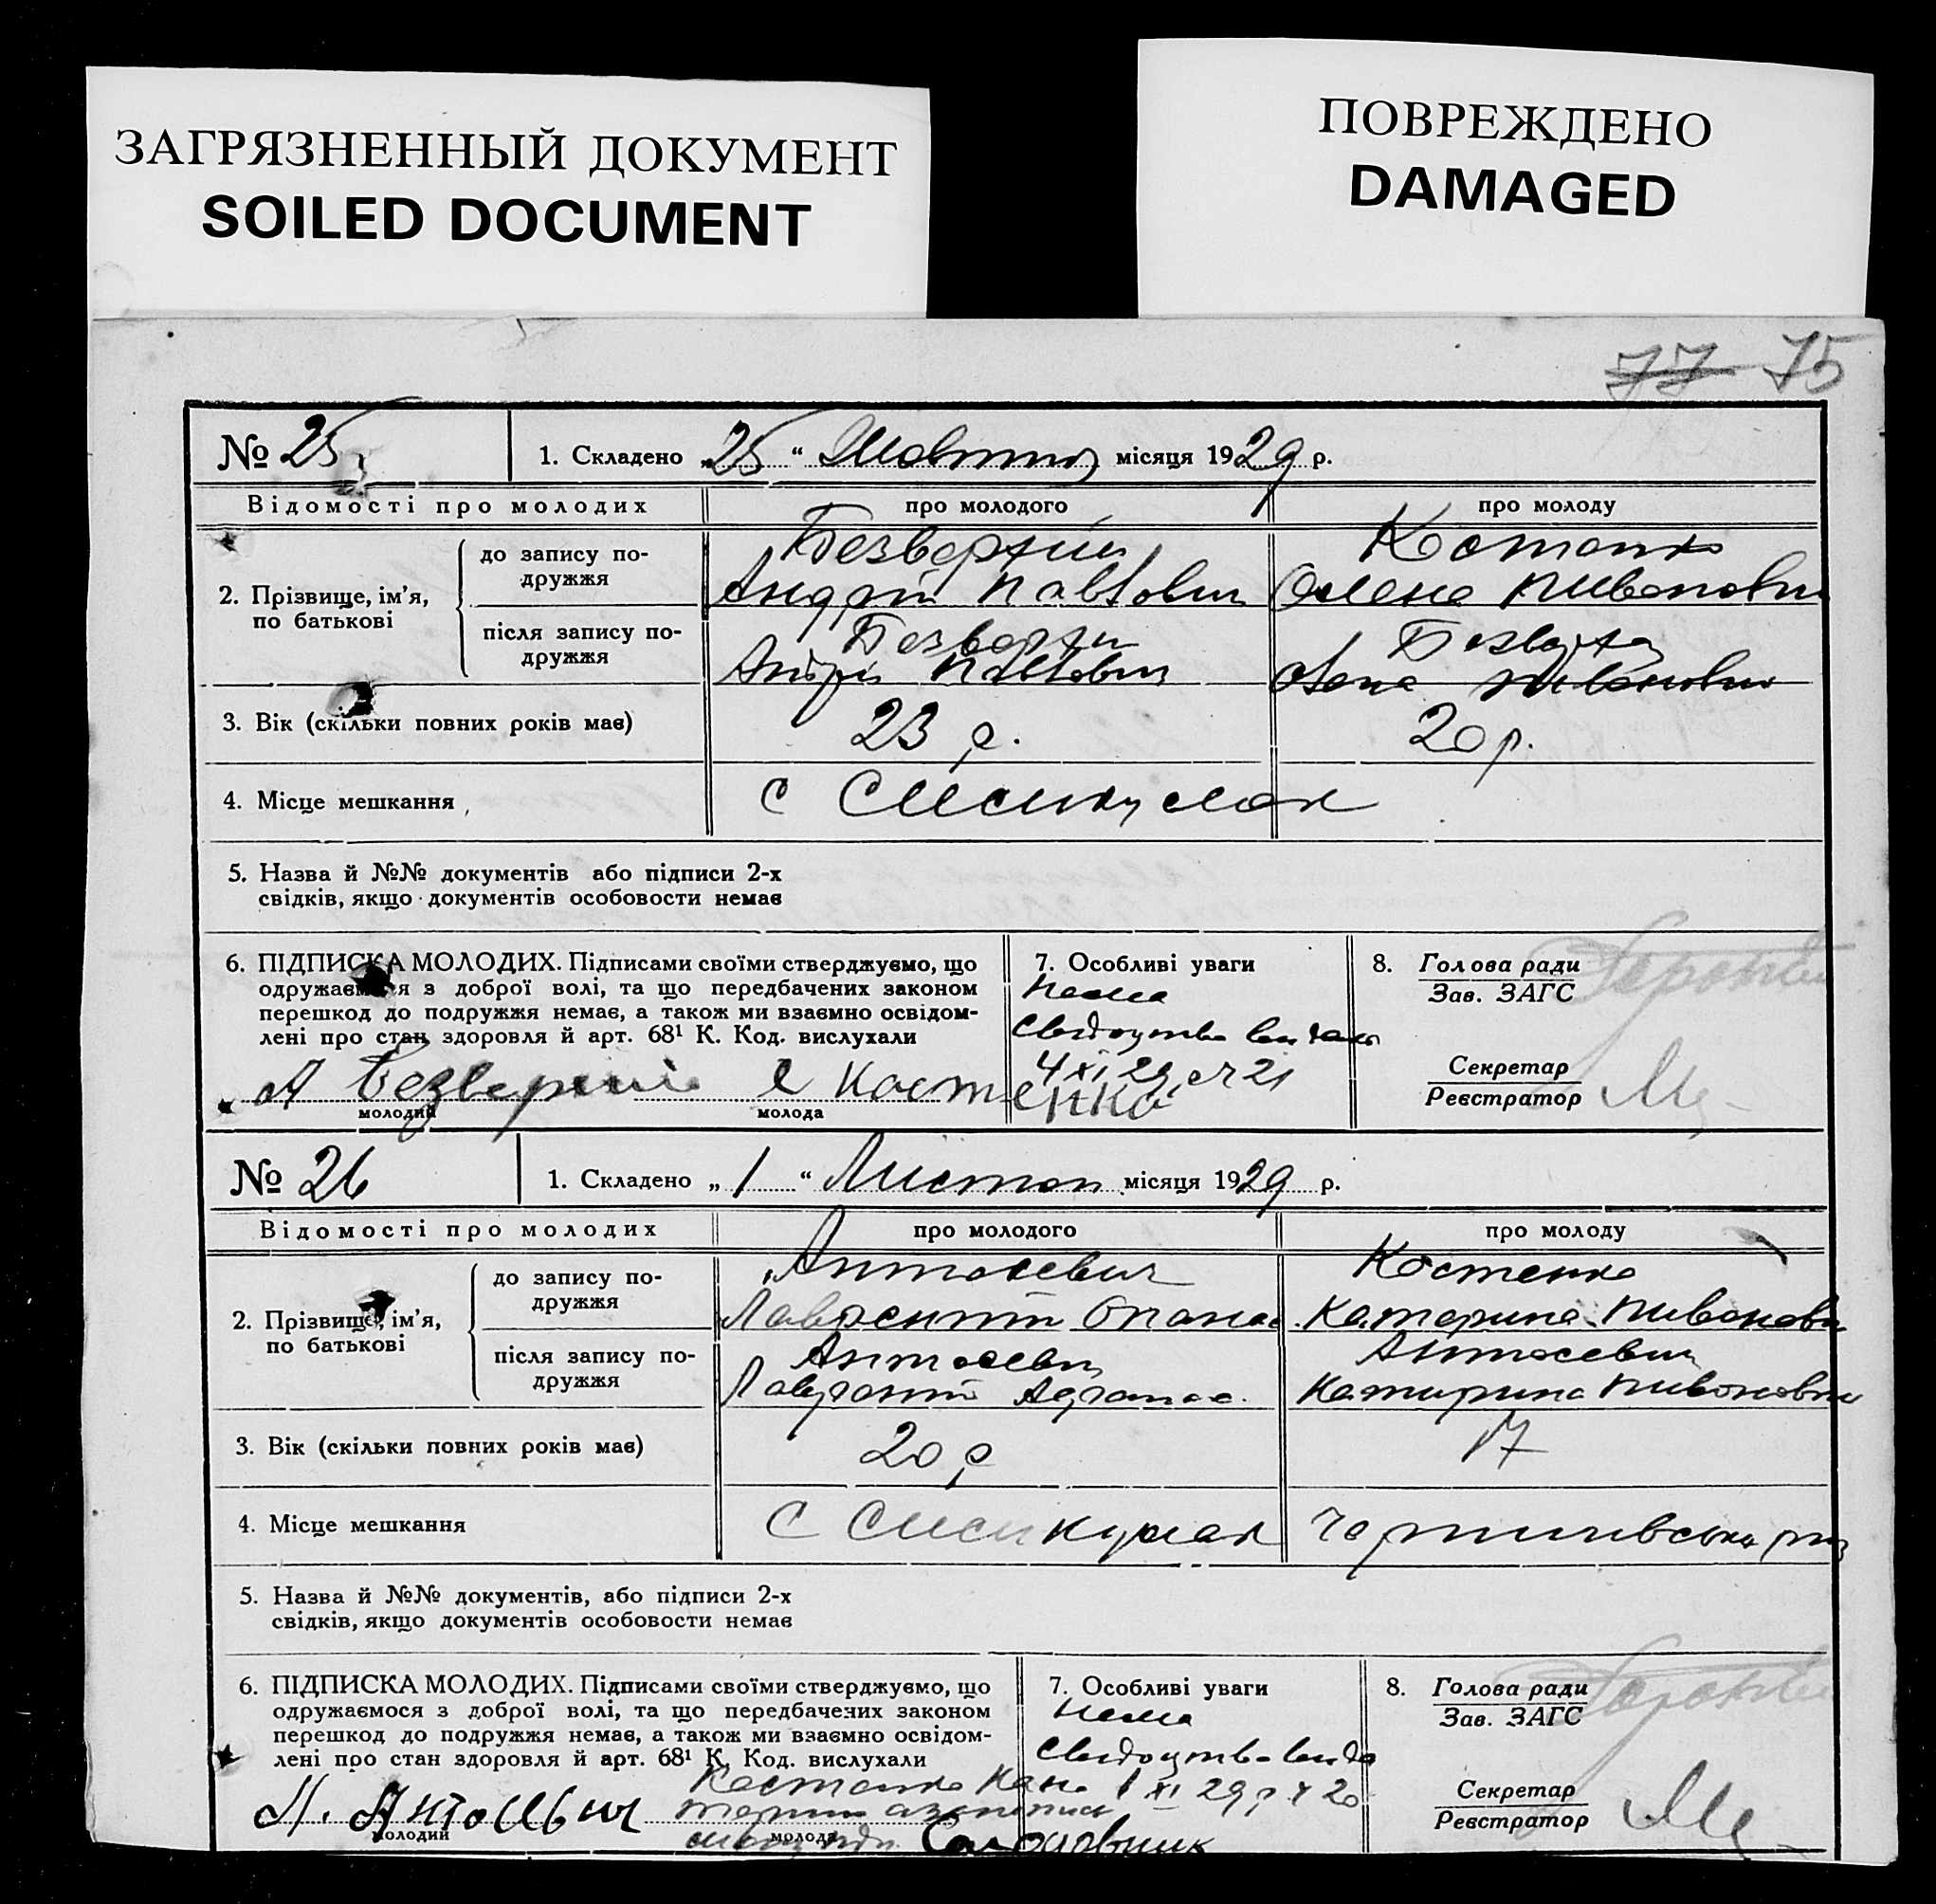 ЗАГРЯЗНЕННЫЙ ДОКУМЕНТ
SOILED DOCUMENT
ПОВРЕЖДЕНО
DAMAGED
77 75
№ 25
1. Складено „25“ Жовтня місяця 1929 р.
Відомості про молодих
про молодого
про молоду
2. Прізвище, ім'я, по батькові
до запису подружжя
Безверхий
Андрій Павлович
Костенко
Олена Пивоновн
після запису подружжя
Безверхий
Андрій Павлович
Безверха
Олена Пивоновн
3. Вік (скільки повних років має)
23 р.
20 р.
4. Місце мешкання
с
5. Назва й №№ документів або підписи 2-х
свідків, якщо документів особовости немає
6. ПІДПИСКА МОЛОДИХ. Підписами своїми стверджуємо, що
одружаємося з доброї волі, та що передбачених законом
перешкод до подружжя немає, а також ми взаємно освідом-
лені про стан здоровля й арт. 68¹ К. Код. вислухали
А Безверхий
Е Костенко
молодий
молода
7. Особливі уваги
Нема
Свідоцтво видано
4 XI 29 р № 21
8. Голова ради
Зав. ЗАГС
Секретар
Реєстратор
№ 26
1. Складено „1“ Листоп місяця 1929 р.
Відомості про молодих
про молодого
про молоду
2. Прізвище, ім'я, по батькові
до запису подружжя
Антосевич
Лаврентій Опанас
Костенко
Катерина Пивоновн
після запису подружжя
Антосевич
Лаврентій
Антосевич
Катирина Пивоновн
3. Вік (скільки повних років має)
20 р
17
4. Місце мешкання
с
5. Назва й №№ документів, або підписи 2-х
свідків, якщо документів особовости немає
6. ПІДПИСКА МОЛОДИХ. Підписами своїми стверджуємо, що
одружаємося з доброї волі, та що передбачених законом
перешкод до подружжя немає, а також ми взаємно освідом-
лені про стан здоровля й арт. 68¹ К. Код. вислухали
Л. Антосевич
Костенко
молодий
молода
7. Особливі уваги
Нема
Свідоцтво видо
1 XI 29 р № 20
8. Голова ради
Зав. ЗАГС
Секретар
Реєстратор